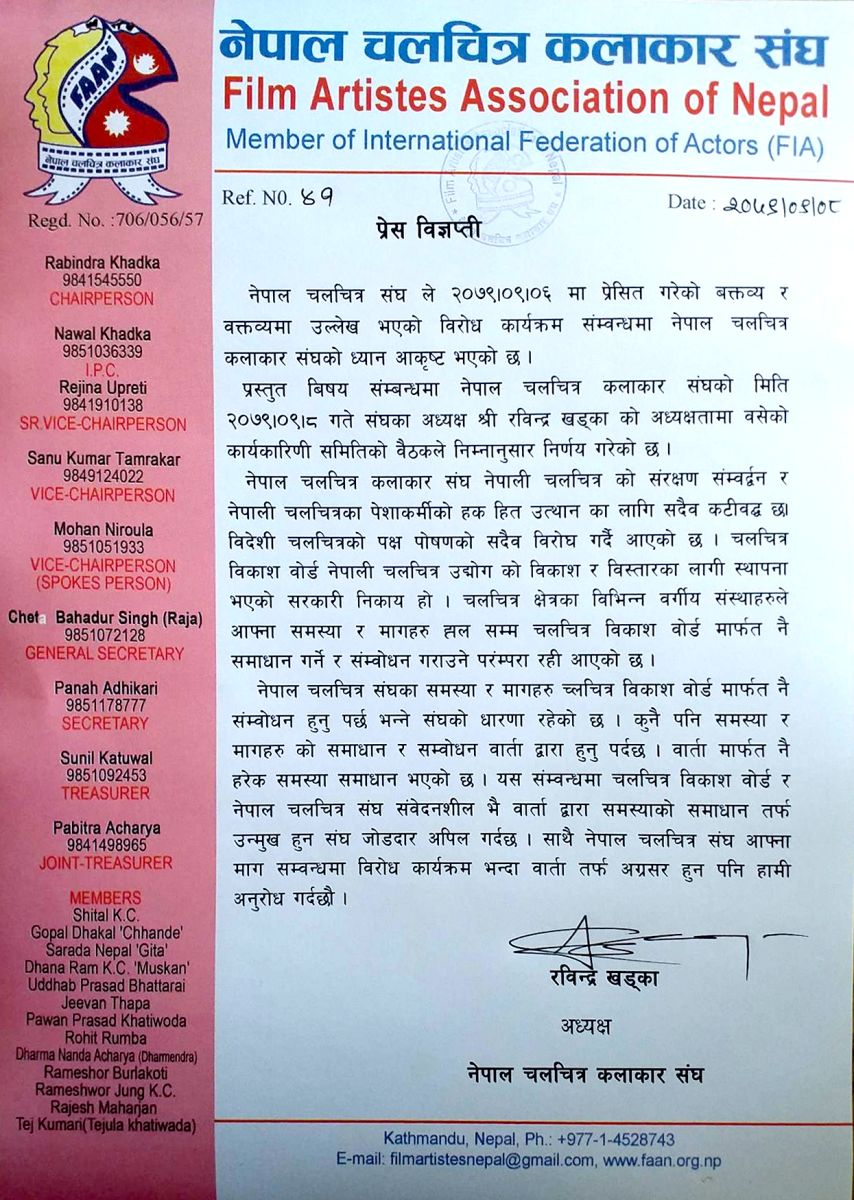 नेपाल चलचित्र कलाकार संघ
Film Artistes Association of Nepal
Member of International Federation of Actors (FIA)
FAAN
नेपाल चलचित्र कलाकार संघ
Regd. No. :706/056/57
Ref. N0. ४१
Date : २०७९/०९/०८
प्रेस विज्ञप्ती
Rabindra Khadka
9841545550
CHAIRPERSON
Nawal Khadka
9851036339
I.P.C.
Rejina Upreti
9841910138
SR.VICE-CHAIRPERSON
Sanu Kumar Tamrakar
9849124022
VICE-CHAIRPERSON
Mohan Niroula
9851051933
VICE-CHAIRPERSON
(SPOKES PERSON)
Cheta Bahadur Singh (Raja)
9851072128
GENERAL SECRETARY
Panah Adhikari
9851178777
SECRETARY
Sunil Katuwal
9851092453
TREASURER
Pabitra Acharya
9841498965
JOINT-TREASURER
MEMBERS
Shital K.C.
Gopal Dhakal 'Chhande'
Sarada Nepal 'Gita'
Dhana Ram K.C. 'Muskan'
Uddhab Prasad Bhattarai
Jeevan Thapa
Pawan Prasad Khatiwoda
Rohit Rumba
Dharma Nanda Acharya (Dharmendra)
Rameshor Burlakoti
Rameshwor Jung K.C.
Rajesh Maharjan
Tej Kumari(Tejula khatiwada)
नेपाल चलचित्र संघ ले २०७९।०९।०६ मा प्रेसित गरेको बक्तव्य र
वक्तव्यमा उल्लेख भएको विरोध कार्यक्रम संम्वन्धमा नेपाल चलचित्र
कलाकार संघको ध्यान आकृष्ट भएको छ ।
प्रस्तुत बिषय संम्बन्धमा नेपाल चलचित्र कलाकार संघको मिति
२०७९।०९।८ गते संघका अध्यक्ष श्री रविन्द्र खड्का को अध्यक्षतामा वसेको
कार्यकारिणी समितिको वैठकले निम्नानुसार निर्णय गरेको छ ।
नेपाल चलचित्र कलाकार संघ नेपाली चलचित्र को संरक्षण संम्वर्द्वन र
नेपाली चलचित्रका पेशाकर्मीको हक हित उत्थान का लागि सदैव कटीवद्ध छ।
विदेशी चलचित्रको पक्ष पोषणको सदैव विरोध गर्दै आएको छ । चलचित्र
विकाश वोर्ड नेपाली चलचित्र उद्योग को विकाश र विस्तारका लागी स्थापना
भएको सरकारी निकाय हो । चलचित्र क्षेत्रका विभिन्न वर्गीय संस्थाहरुले
आफ्ना समस्या र मागहरु हाल सम्म चलचित्र विकाश वोर्ड मार्फत नै
समाधान गर्ने र संम्वोधन गराउने परंम्परा रही आएको छ ।
नेपाल चलचित्र संघका समस्या र मागहरु च्लचित्र विकाश वोर्ड मार्फत नै
संम्वोधन हुनु पर्छ भन्ने संघको धारणा रहेको छ । कुनै पनि समस्या र
मागहरु को समाधान र सम्वोधन वार्ता द्वारा हुनु पर्दछ । वार्ता मार्फत नै
हरेक समस्या समाधान भएको छ । यस संम्वन्धमा चलचित्र विकाश वोर्ड र
नेपाल चलचित्र संघ संवेदनशील भै वार्ता द्वारा समस्याको समाधान तर्फ
उन्मुख हुन संघ जोडदार अपिल गर्दछ । साथै नेपाल चलचित्र संघ आफ्ना
माग सम्वन्धमा विरोध कार्यक्रम भन्दा वार्ता तर्फ अग्रसर हुन पनि हामी
अनुरोध गर्दछौ ।
रविन्द्र खड्का
अध्यक्ष
नेपाल चलचित्र कलाकार संघ
Kathmandu, Nepal, Ph.: +977-1-4528743
E-mail: filmartistesnepal@gmail.com, www.faan.org.np